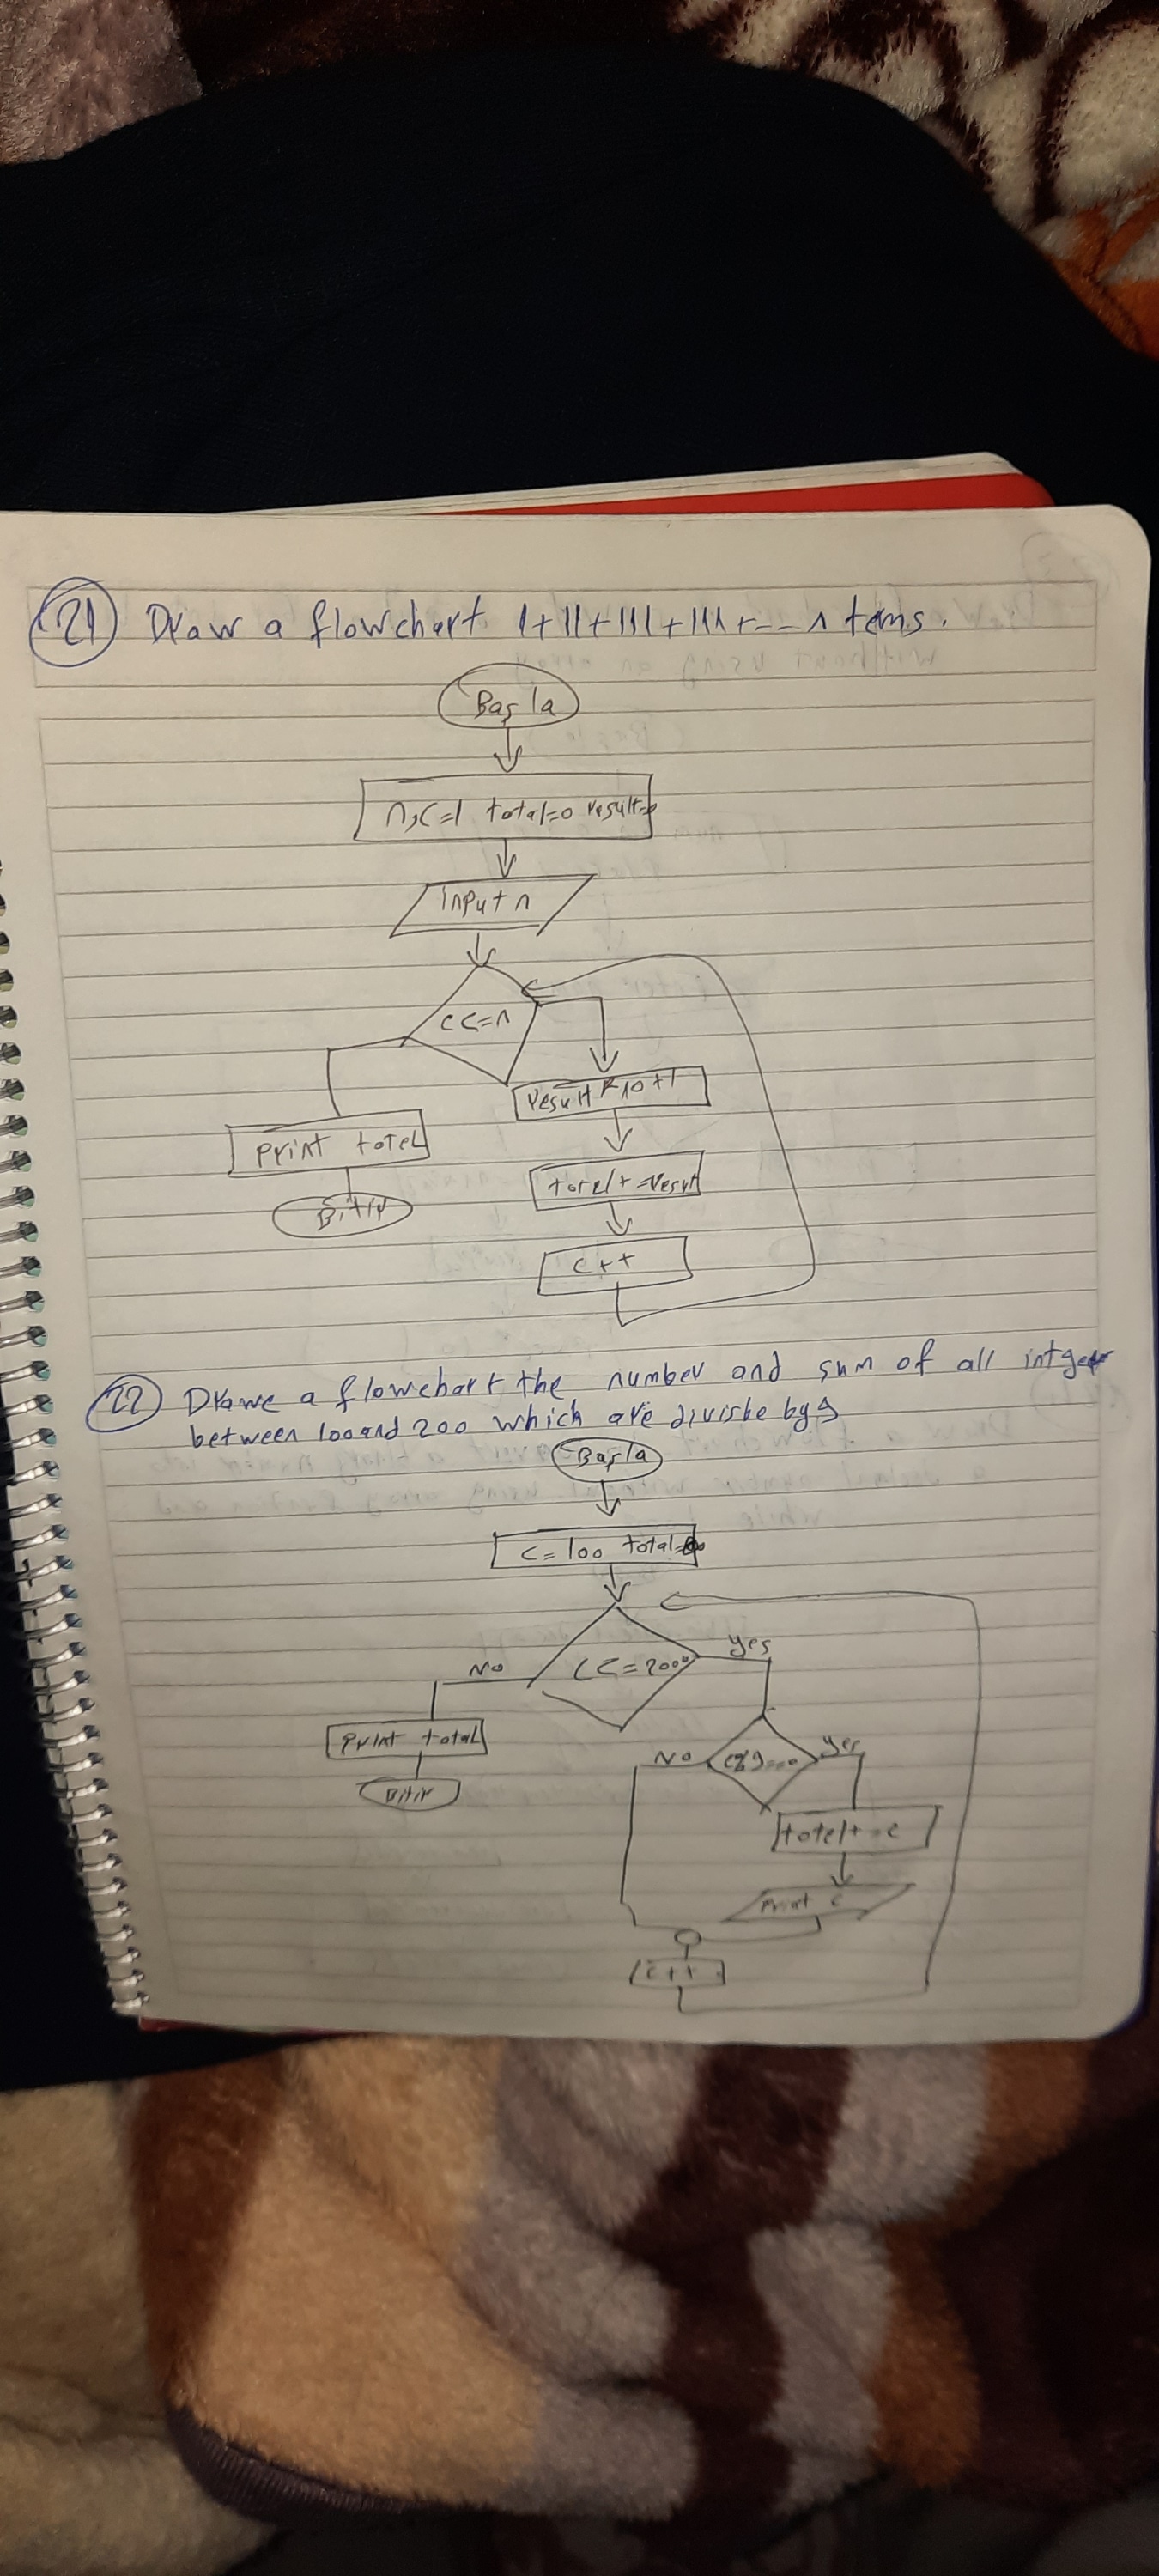 21 Draw a flowchart 1+11+111+1111+--- n tems.
Başla
n,c=1 total=0 result=0
input n
c<=n
result*10+1
print totel
totel+=resul
Bitir
c++
22 Drawe a flowchart the number and sum of all intger
between 100 and 200 which are divisbe by 9
Başla
c=100 total=0
c<=200
No
yes
print total
Bitir
No
c%9==0
yes
totel+=c
print c
c++